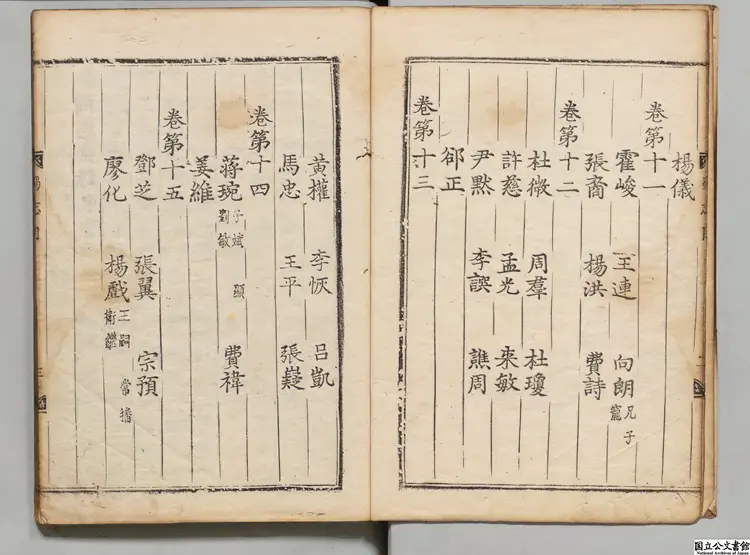 楊儀
卷第十一
霍峻 王連 向朗 兄子寵
張裔 楊洪 費詩
卷第十二
杜微 周羣 杜瓊
許慈 孟光 來敏
尹默 李譔 譙周
郤正
卷第十三
黃權 李恢 呂凱
馬忠 王平 張嶷
卷第十四
蔣琬 子斌 顯 劉敏 費禕
姜維
卷第十五
鄧芝 張翼 宗預
廖化 楊戲 王嗣 常播 衛繼
國立公文書館
National Archives of Japan